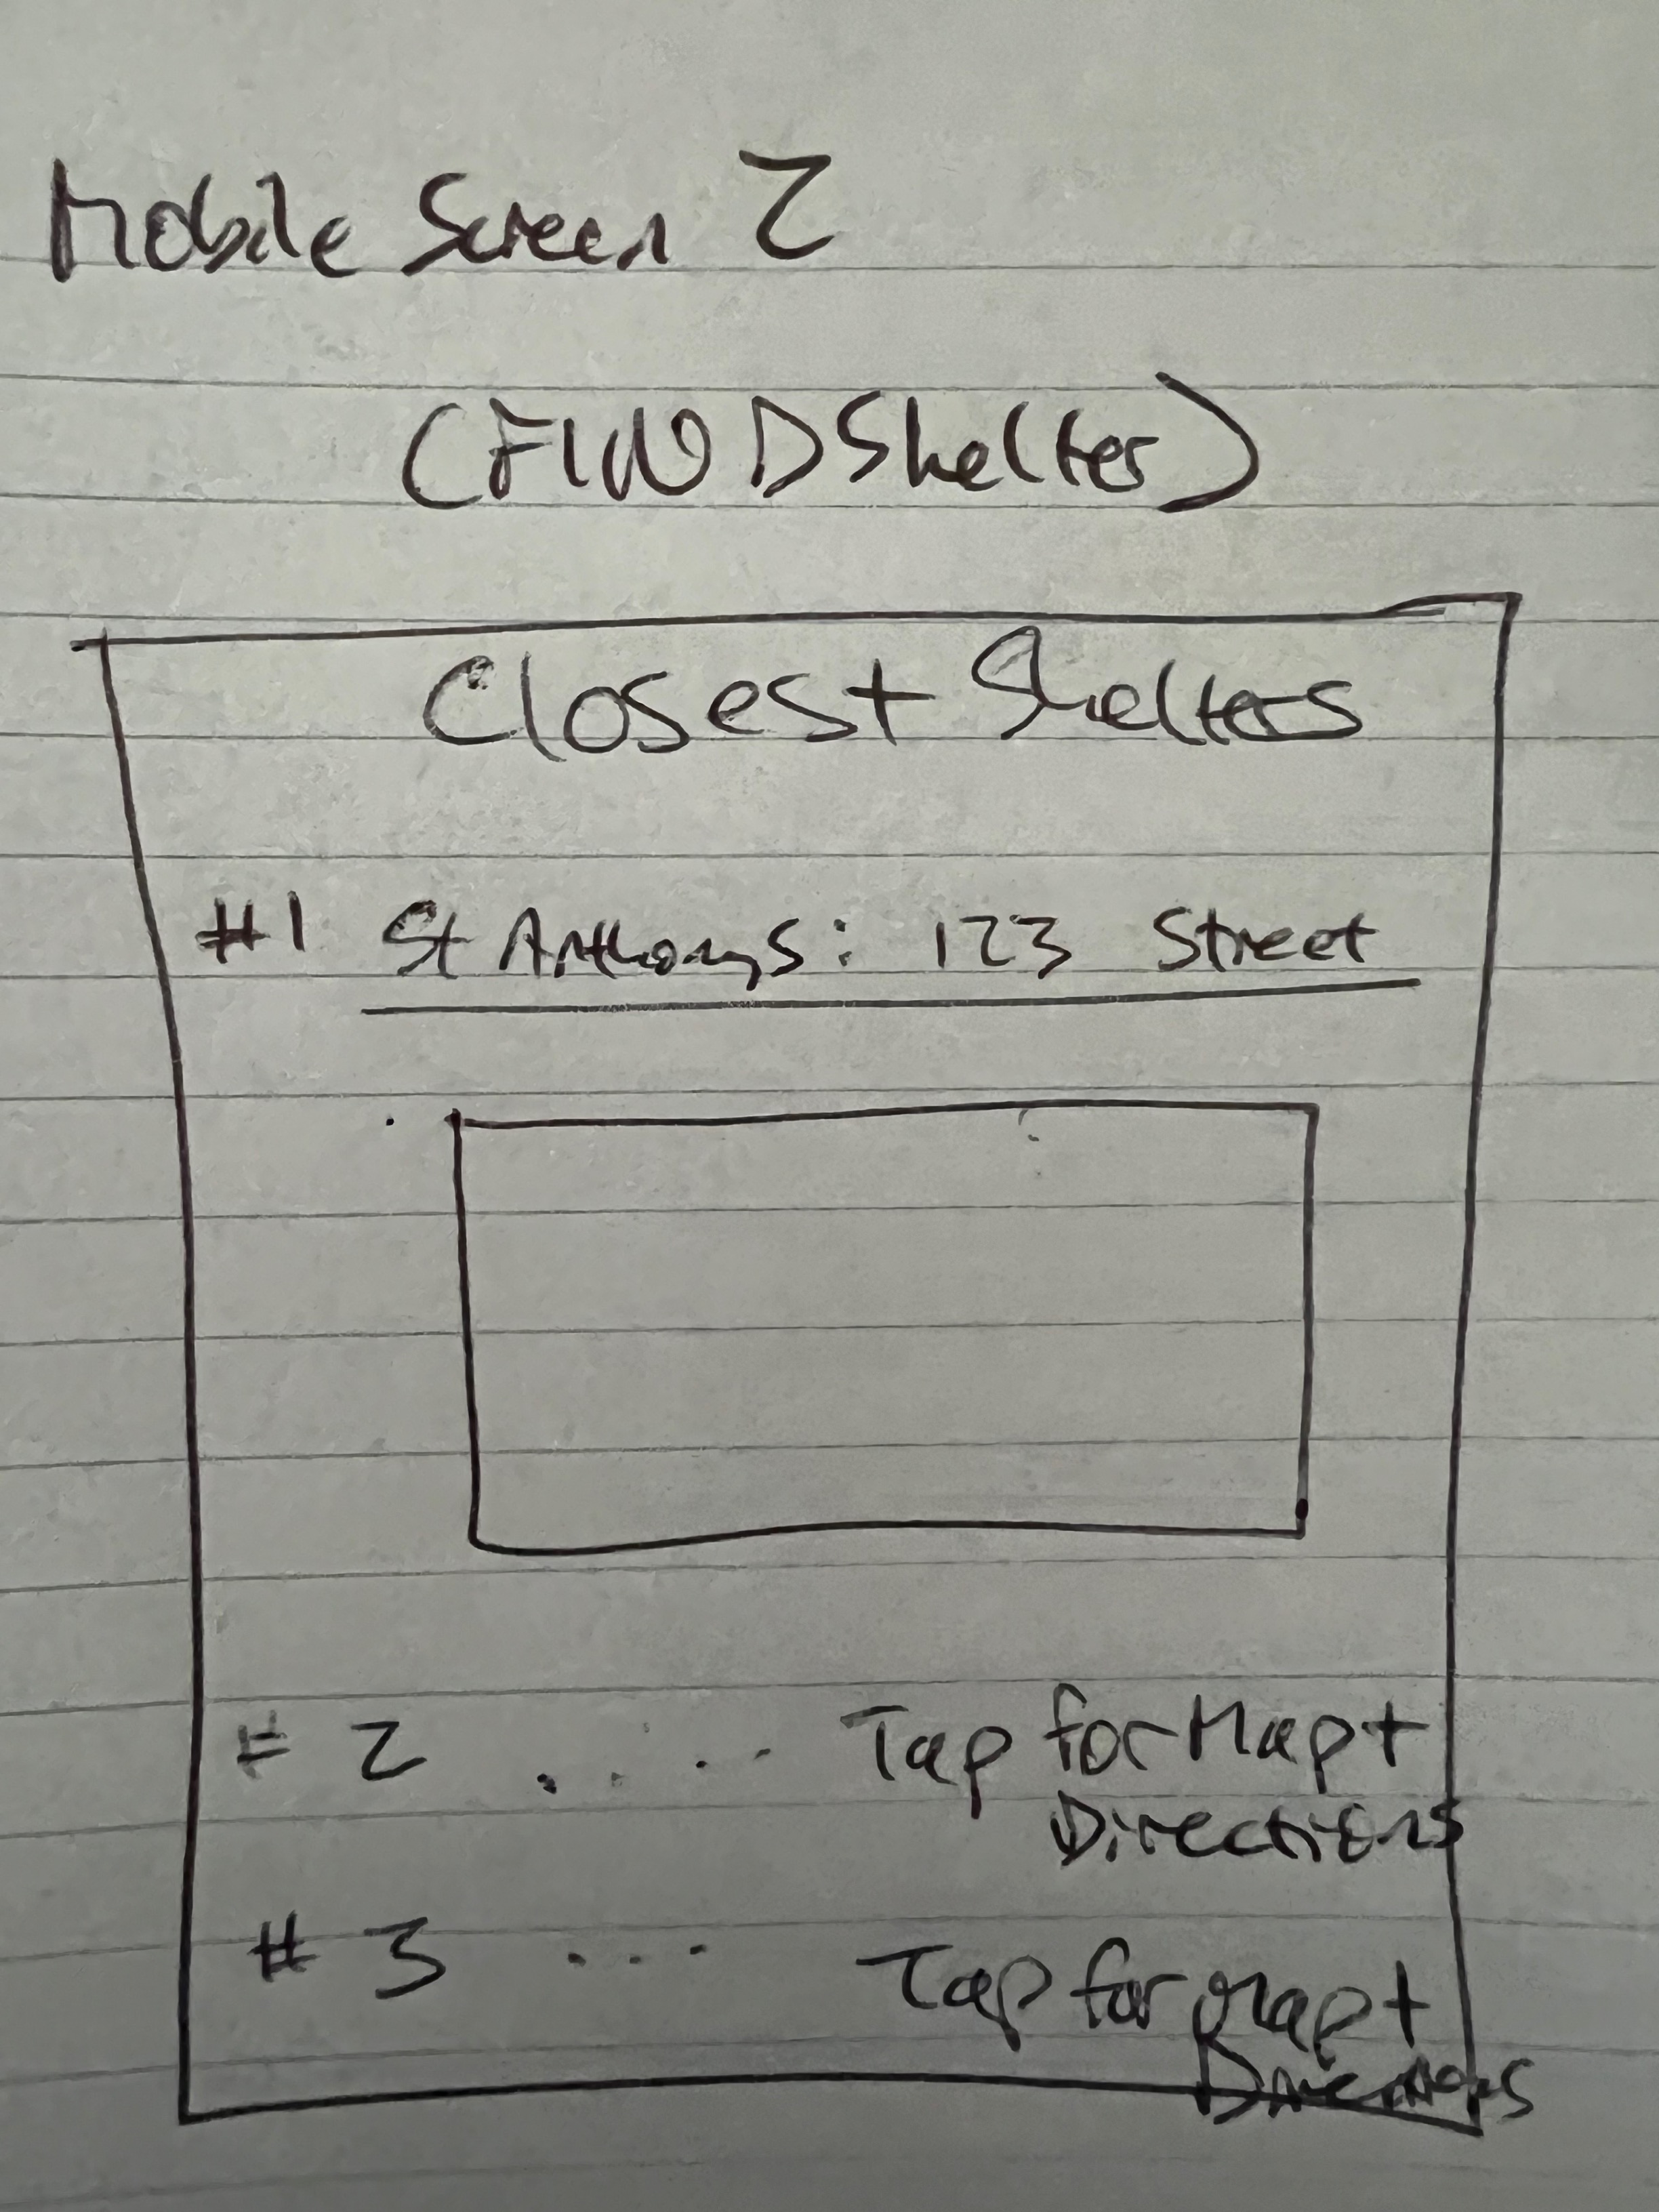 Mobile Screen 2
(FIND Shelter)
Closest Shelters
#1 St Anthonys: 123 Street
# 2 .... Tap for Map +
Directions
# 3 ... Tap for Map +
Directions